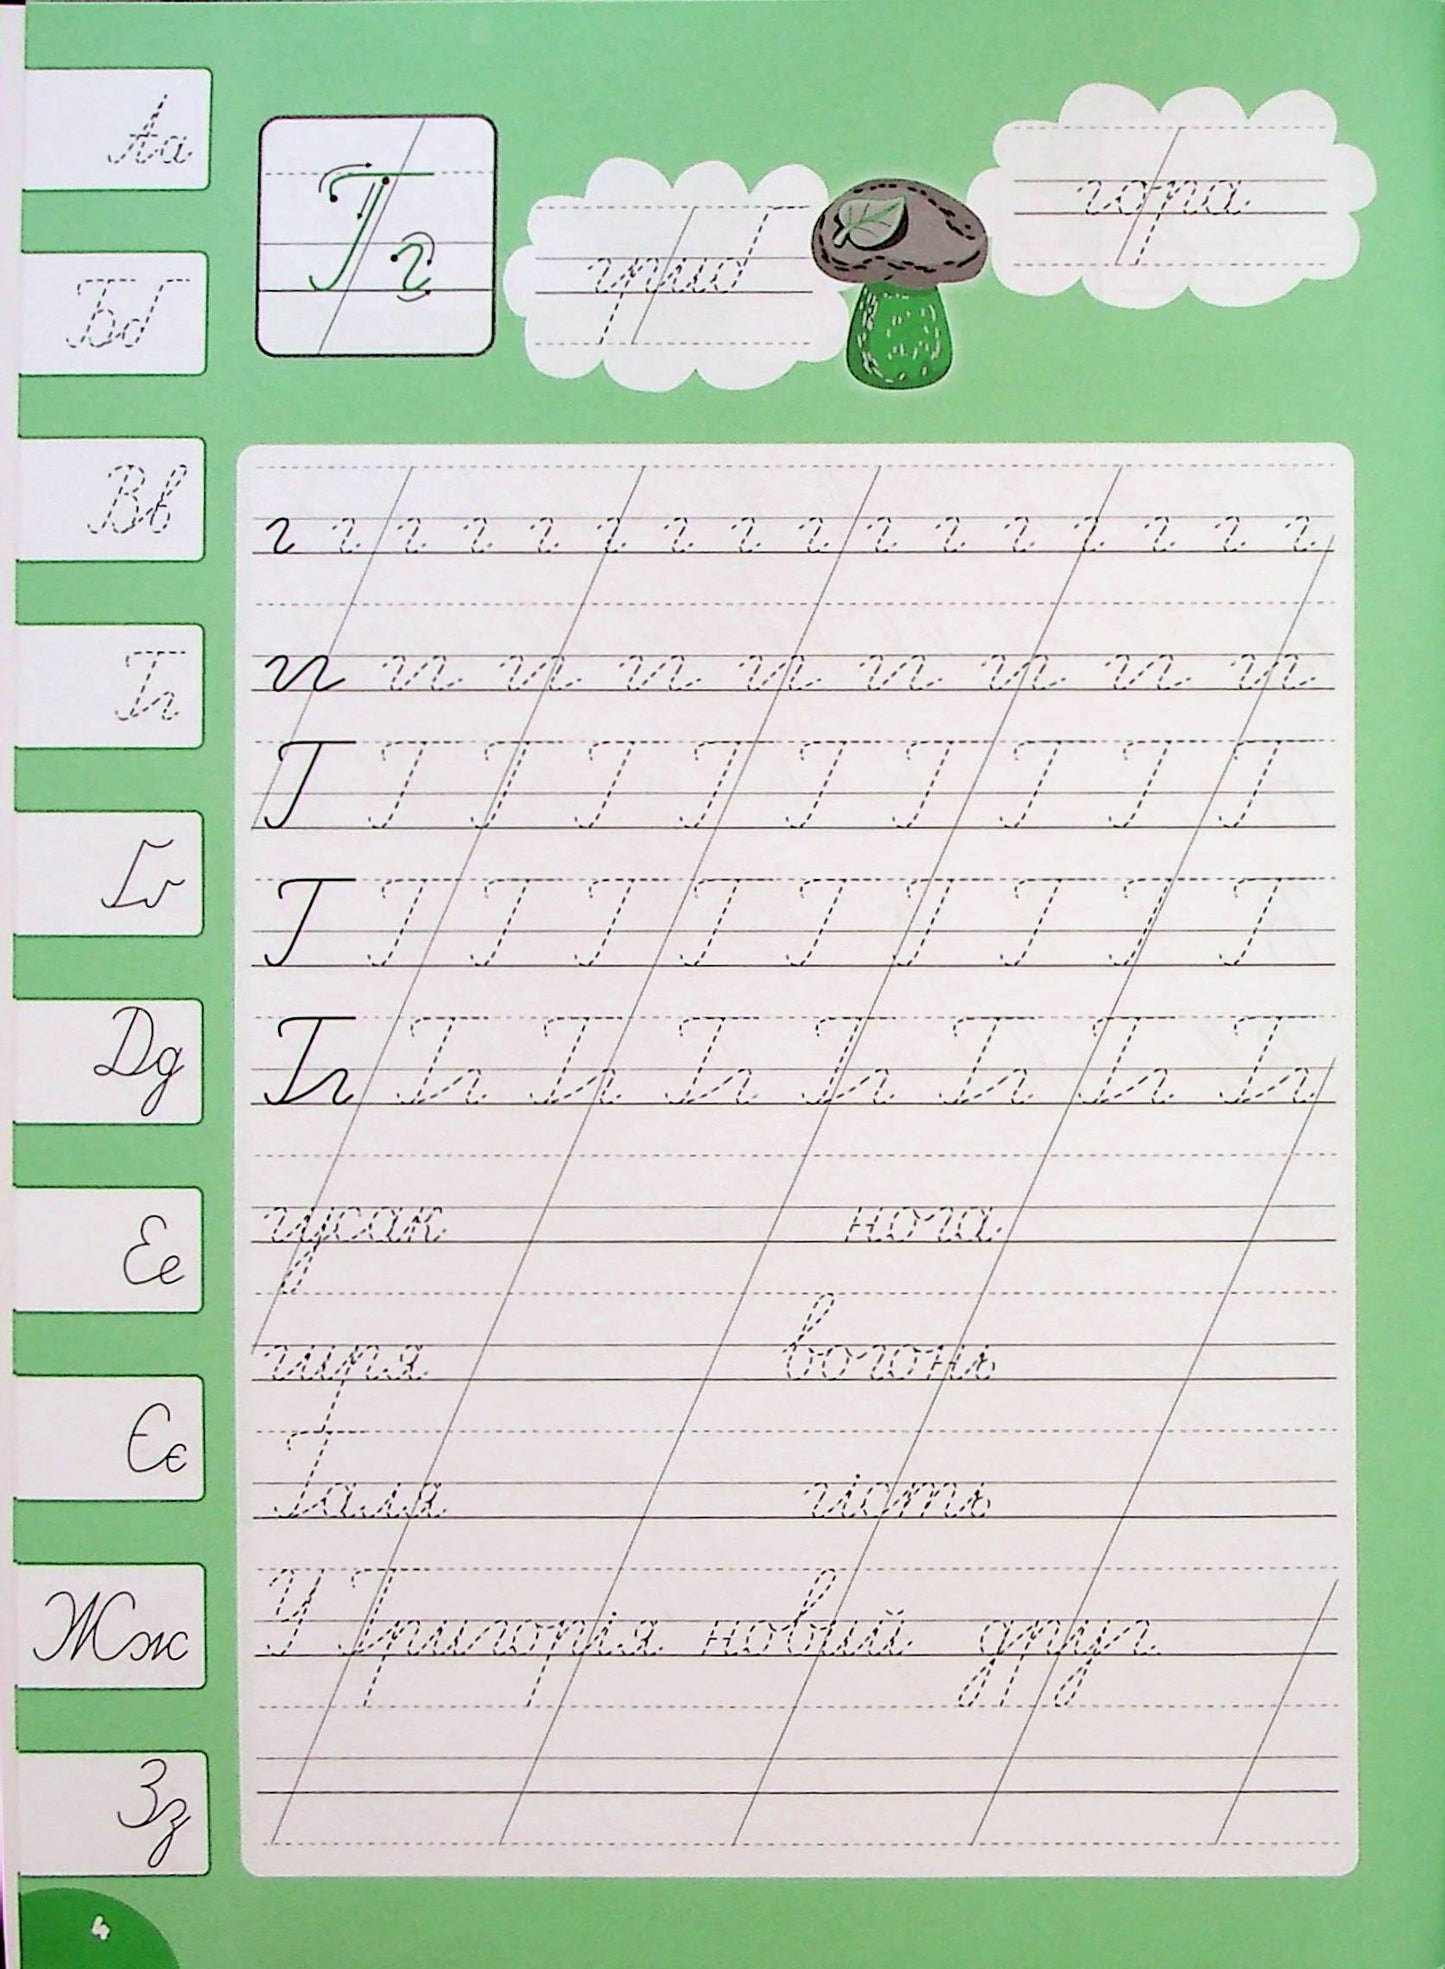 Аа
Бб
Вв
Гг
Ґґ
Дд
Ее
Єє
Жж
Зз
Гг
гриб
гора
г г г г г г г г г г г г г г г г
гг гг гг гг гг гг гг гг гг
Г Г Г Г Г Г Г Г Г Г
Г Г Г Г Г Г Г Г Г Г
Гг Гг Гг Гг Гг Гг Гг Гг
гусак нога
гиря вогонь
Галя гість
У Григорія новий друг.
4